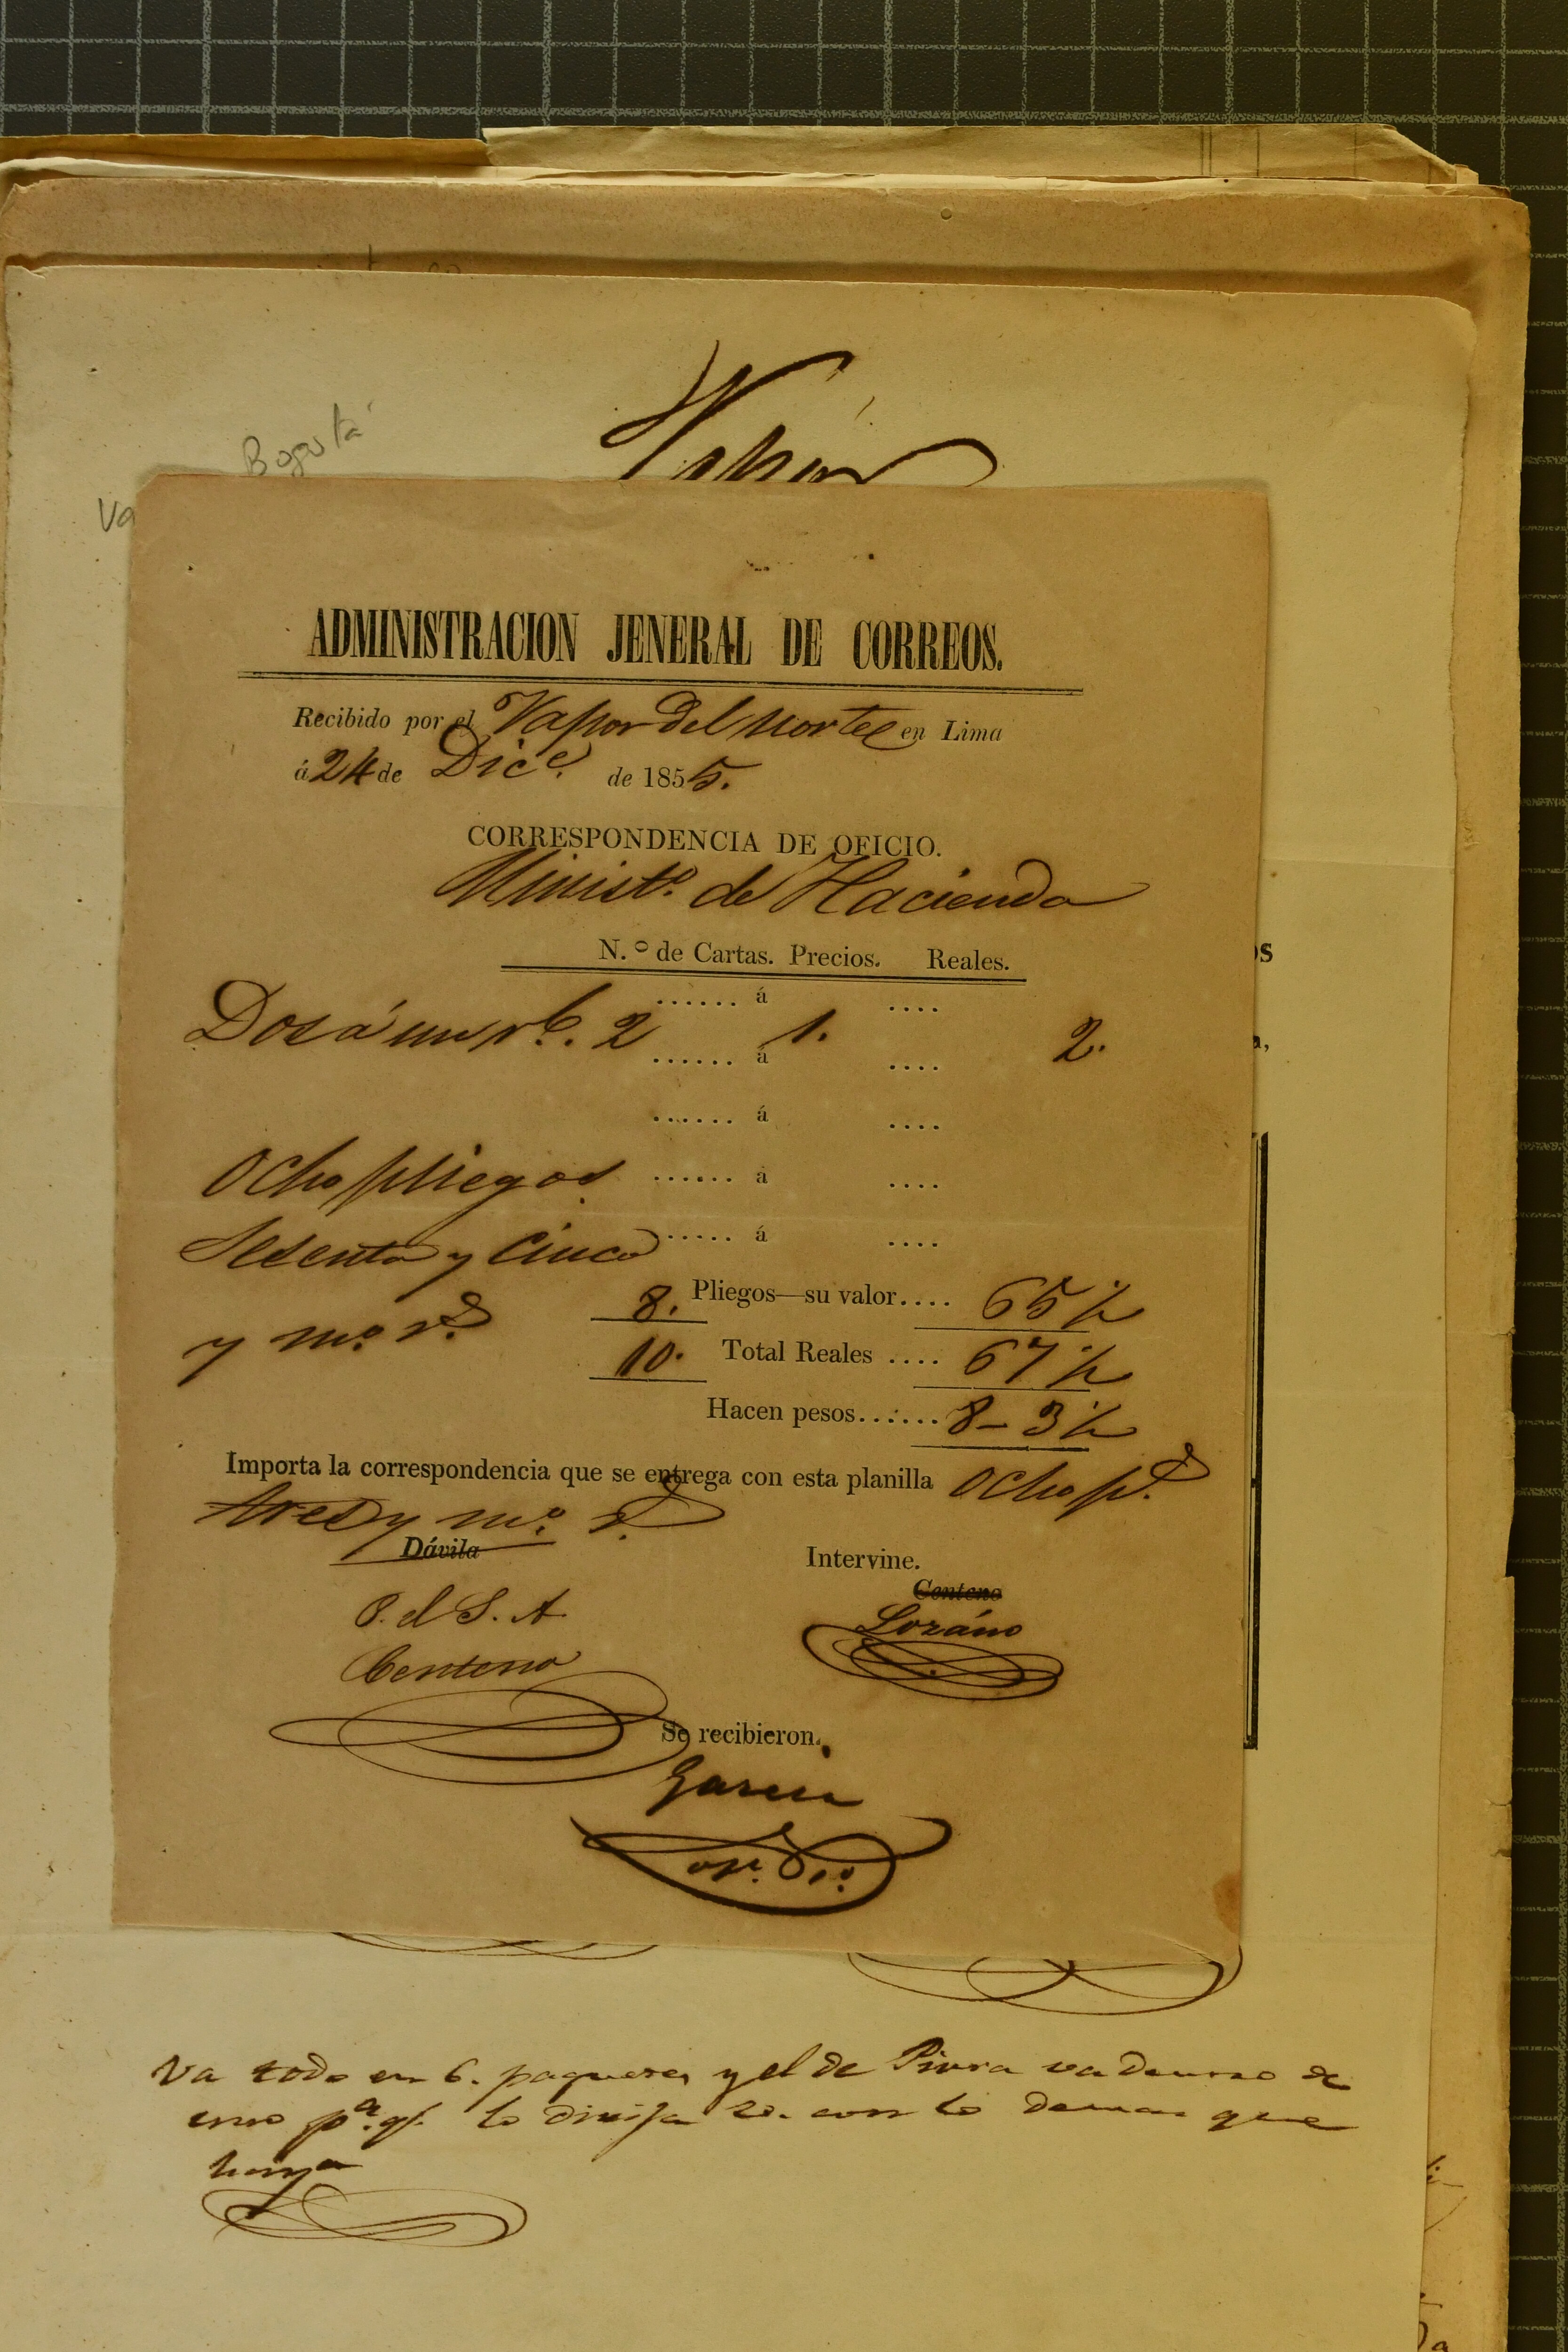 Bogotá
ADMINISTRACION JENERAL DE CORREOS.
Recibido por el Vapor del Norte en Lima
á 24 de Dice. de 1855.
CORRESPONDENCIA DE OFICIO.
Ministo. de Hacienda
N.o de Cartas. Precios. Reales.
...... á ....
Dos á un rl. 2 1. 2.
...... á ....
...... á ....
Ocho pliegos ...... á ....
Sesenta y Cinco ...... á ....
8. Pliegos—su valor.... 65 ½
y mo. rs.
10. Total Reales .... 67 ½
Hacen pesos...... 8-3 ½
Importa la correspondencia que se entrega con esta planilla Ocho ps.
tres y mo. rs.
Dávila
Intervine.
Centeno
P. el S. A.
Lozáno
Centeno
Se recibieron.
Garcia
Va todo en 6. paquetes y el de Piura va dentro de
uno pa. q. lo dirija con lo demas que
haya